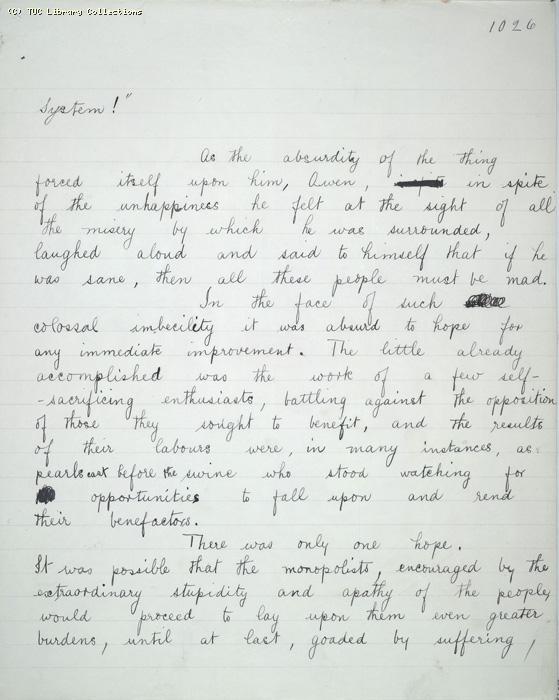 (C) TUC Library Collections
1026
System!"
As the absurdity of the thing
forced itself upon him, Owen, in spite
of the unhappiness he felt at the sight of all
the misery by which he was surrounded,
laughed aloud and said to himself that if he
was sane, then all these people must be mad.
In the face of such
colossal imbecility it was absurd to hope for
any immediate improvement. The little already
accomplished was the work of a few self-
-sacrificing enthusiasts, battling against the opposition
of those they sought to benefit, and the results
of their labours were, in many instances, as
pearls cast before the swine who stood watching for
opportunities to fall upon and rend
their benefactors.
There was only one hope.
It was possible that the monopolists, encouraged by the
extraordinary stupidity and apathy of the people,
would proceed to lay upon them even greater
burdens, until at last, goaded by suffering,